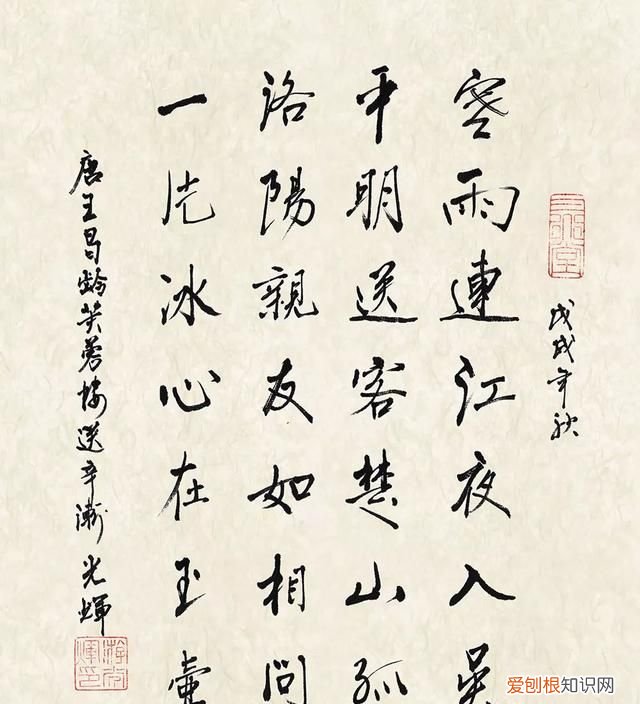 戊戌年秋
寒雨連江夜入吴
平明送客楚山孤
洛陽親友如相問
一片冰心在玉壺
唐王昌齡芙蓉樓送辛漸 光煇
爱刨根知识网